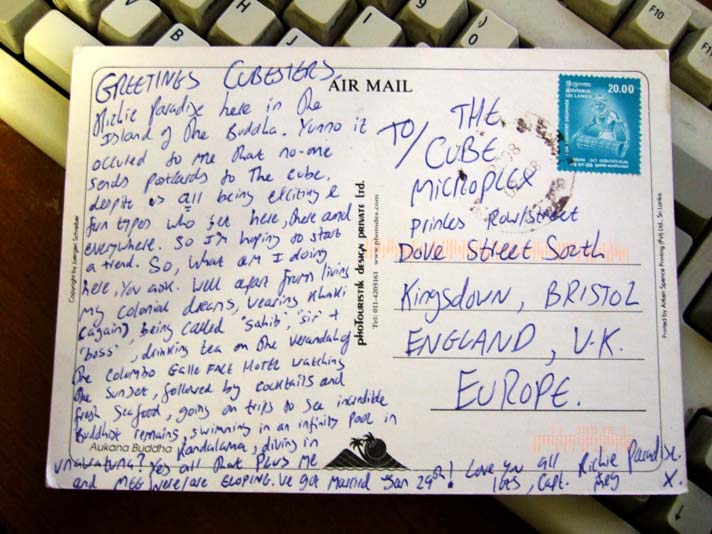 GREETINGS CUBESTERS,
Richie Paradise here in the
Island of the Buddha. Yunno it
occured to me that no-one
sends postcards to the Cube,
despite us all being exciting &
fun types who jet here, there and
everywhere. So I'm hoping to start
a trend. So, what am I doing
here, you ask. Well apart from living
my colonial dreams, wearing khaki
(again), being called "sahib", "sir" +
"boss", drinking tea on the verandah of
the Colombo Galle Face Hotel watching
the sunset, followed by cocktails and
fresh seafood, going on trips to see incredible
Buddhist remains, swimming in an infinity pool in
Kandalama, diving in
unawatuna! Yes all that PLUS me
and MEG were/are ELOPING. We got married Jan 29th! Love you all Richie Paradise.
lots, Capt. X.
AIR MAIL
TO/ THE
CUBE
MICROPLEX
Princes Row/Street
Dove Street South
Kingsdown, BRISTOL
ENGLAND, U.K.
EUROPE.
Aukana Buddha
Copyright by Juergen Schreiber
PHOTOURISTIK DESIGN PRIVATE Ltd.
Tel: 011-4205161 www.photodex.com
Printed by Aitken Spence Printing (Pvt) Ltd., Sri Lanka
SRI LANKA
20.00
B
H
J
N
I
9
0
F10